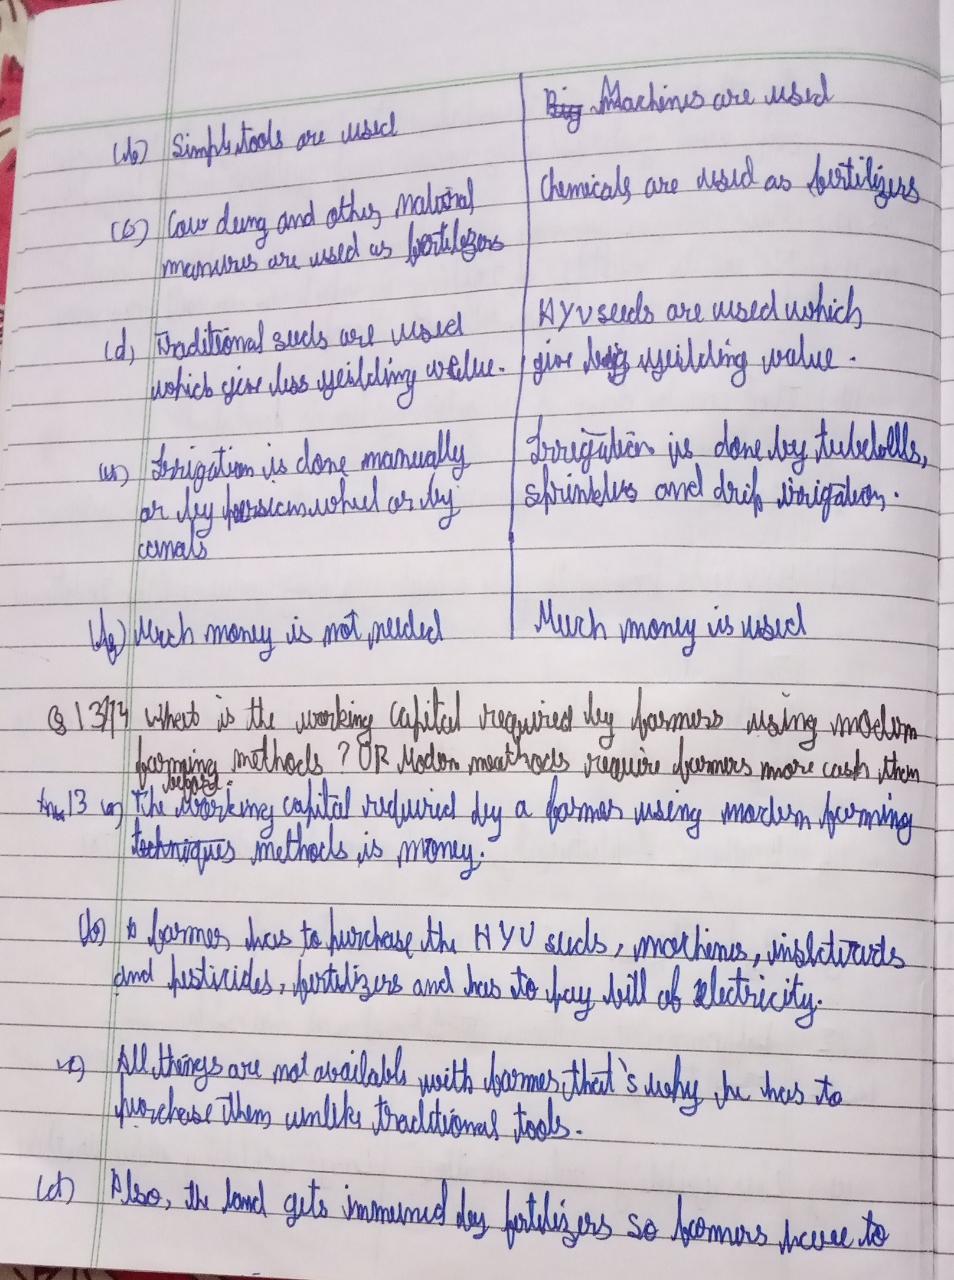 (b) Simple tools are used
Big Machines are used
(c) Cow dung and other natural
manures are used as fertilizers
Chemicals are used as fertilizers
(d) Traditional seeds are used
which give less yeilding value.
HYV seeds are used which
give big yeilding value.
(e) Irrigation is done manually
or by persian wheel or by
canals
Irrigation is done by tubelells,
sprinklers and drip irrigation.
Much money is not needed
Much money is used
Q 13/14 What is the working capital required by farmers using modern
farming methods? OR Modern meathods require farmers more cash then
before
Ans 13 a) The working capital reduired by a farmer using modern farming
techniques methods is money.
(b) A farmer has to purchase the HYV seeds, machines,
and pesticides, fertilizers and has to pay bill of electricity.
c) All things are not available with farmer, that's why he has to
purchase them unlike traditional tools.
(d) Also, the land gets immuned by fertilizers so farmers have to